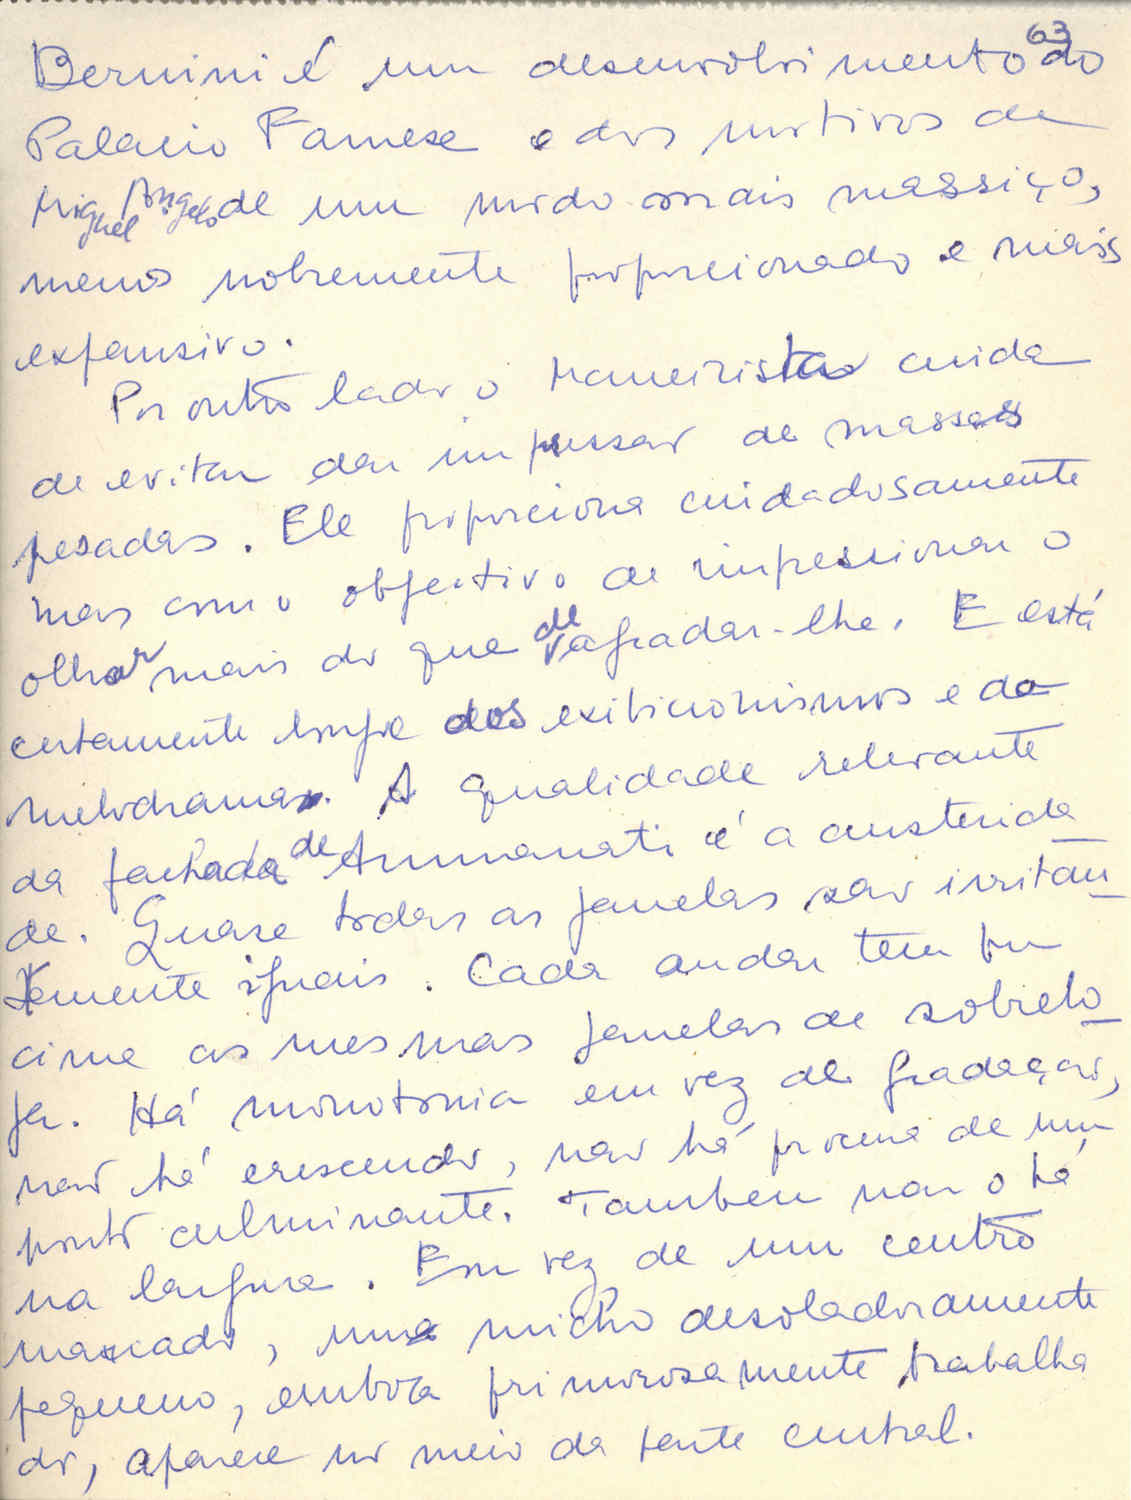 63
Bernini é um desenvolvimento do
Palacio Farnese e dos motivos de
Miguel Angelo de um modo mais massiço,
menos nobremente proporcionado e mais
expansivo.
Por outro lado o Maneirista cuida
de evitar dar impressao de massas
pesadas. Ele proporciona cuidadosamente
mas com o objectivo de impressionar o
olhar mais do que de agradar-lhe. E está
certamente longe dos exibicionismos e do
melodrama. A qualidade relevante
da fachada de Ammanati é a austerida
de. Quase todas as janelas sao irritan
temente iguais. Cada andar tem por
cima as mesmas janelas de sobrelo
ja. Há monotonia em vez de gradaçao,
nao há crescendo, nao há procura de um
ponto culminante. Tambem nao o há
na largura. Em vez de um centro
marcado, um nicho desoladoramente
pequeno, embora primorosamente trabalha
do, aparece no meio da parte central.